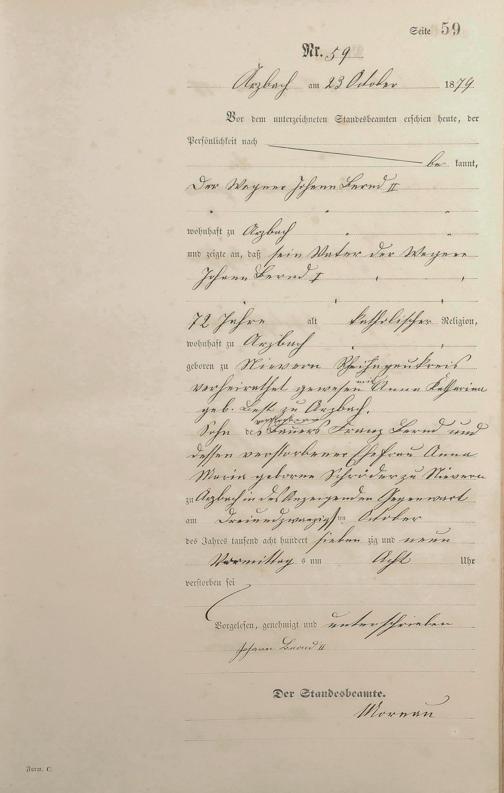 Seite 59
Nr. 59
Arzbach am 23 October 1879.
Vor dem unterzeichneten Standesbeamten erschien heute, der
Persönlichkeit nach
be kannt,
Der Wagner Johann Bernd II
wohnhaft zu Arzbach
und zeigte an, daß sein Vater der Wagner
Johann Bernd I
72 Jahre alt katholischer Religion,
wohnhaft zu Arzbach
geboren zu Nievern Rheingaukreis
verheirathet gewesen mit Anna Katharina
geb. zu Arzbach.
verstorbenen
Sohn des Bauers Franz Bernd und
dessen verstorbener Ehefrau Anna
Maria geborne Schröder zu Nievern
zu Arzbach in des Anzeigenden Gegenwart
am Dreiundzwanzigsten October
des Jahres tausend acht hundert sieben zig und neun
Vormittag s um Acht Uhr
verstorben sei
Vorgelesen, genehmigt und unterschrieben
Johann Bernd II
Der Standesbeamte.
Moreau
Form. C.